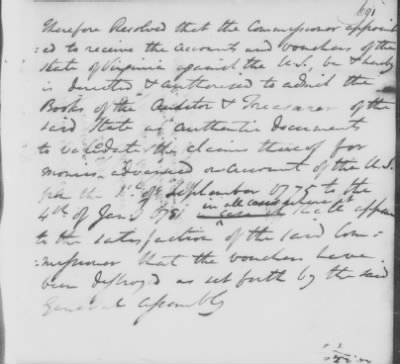 691
Therefore Resolved that the Commissioner appoint
:ed to receive the accounts and vouchers of the
State of Virginia against the U.S., be & hereby
is directed & authorised to admit the
Books of the Auditor & Treasurer of the
said State as authentic documents
to validate the claims thereof for
monies advanced on account of the U.S.
from the 1st of September 1775 to the
4th of Jany 1781 in all cases where it shall appear
to the satisfaction of the said Com=
:missioner that the vouchers have
been destroyed as set forth by the said
General Assembly